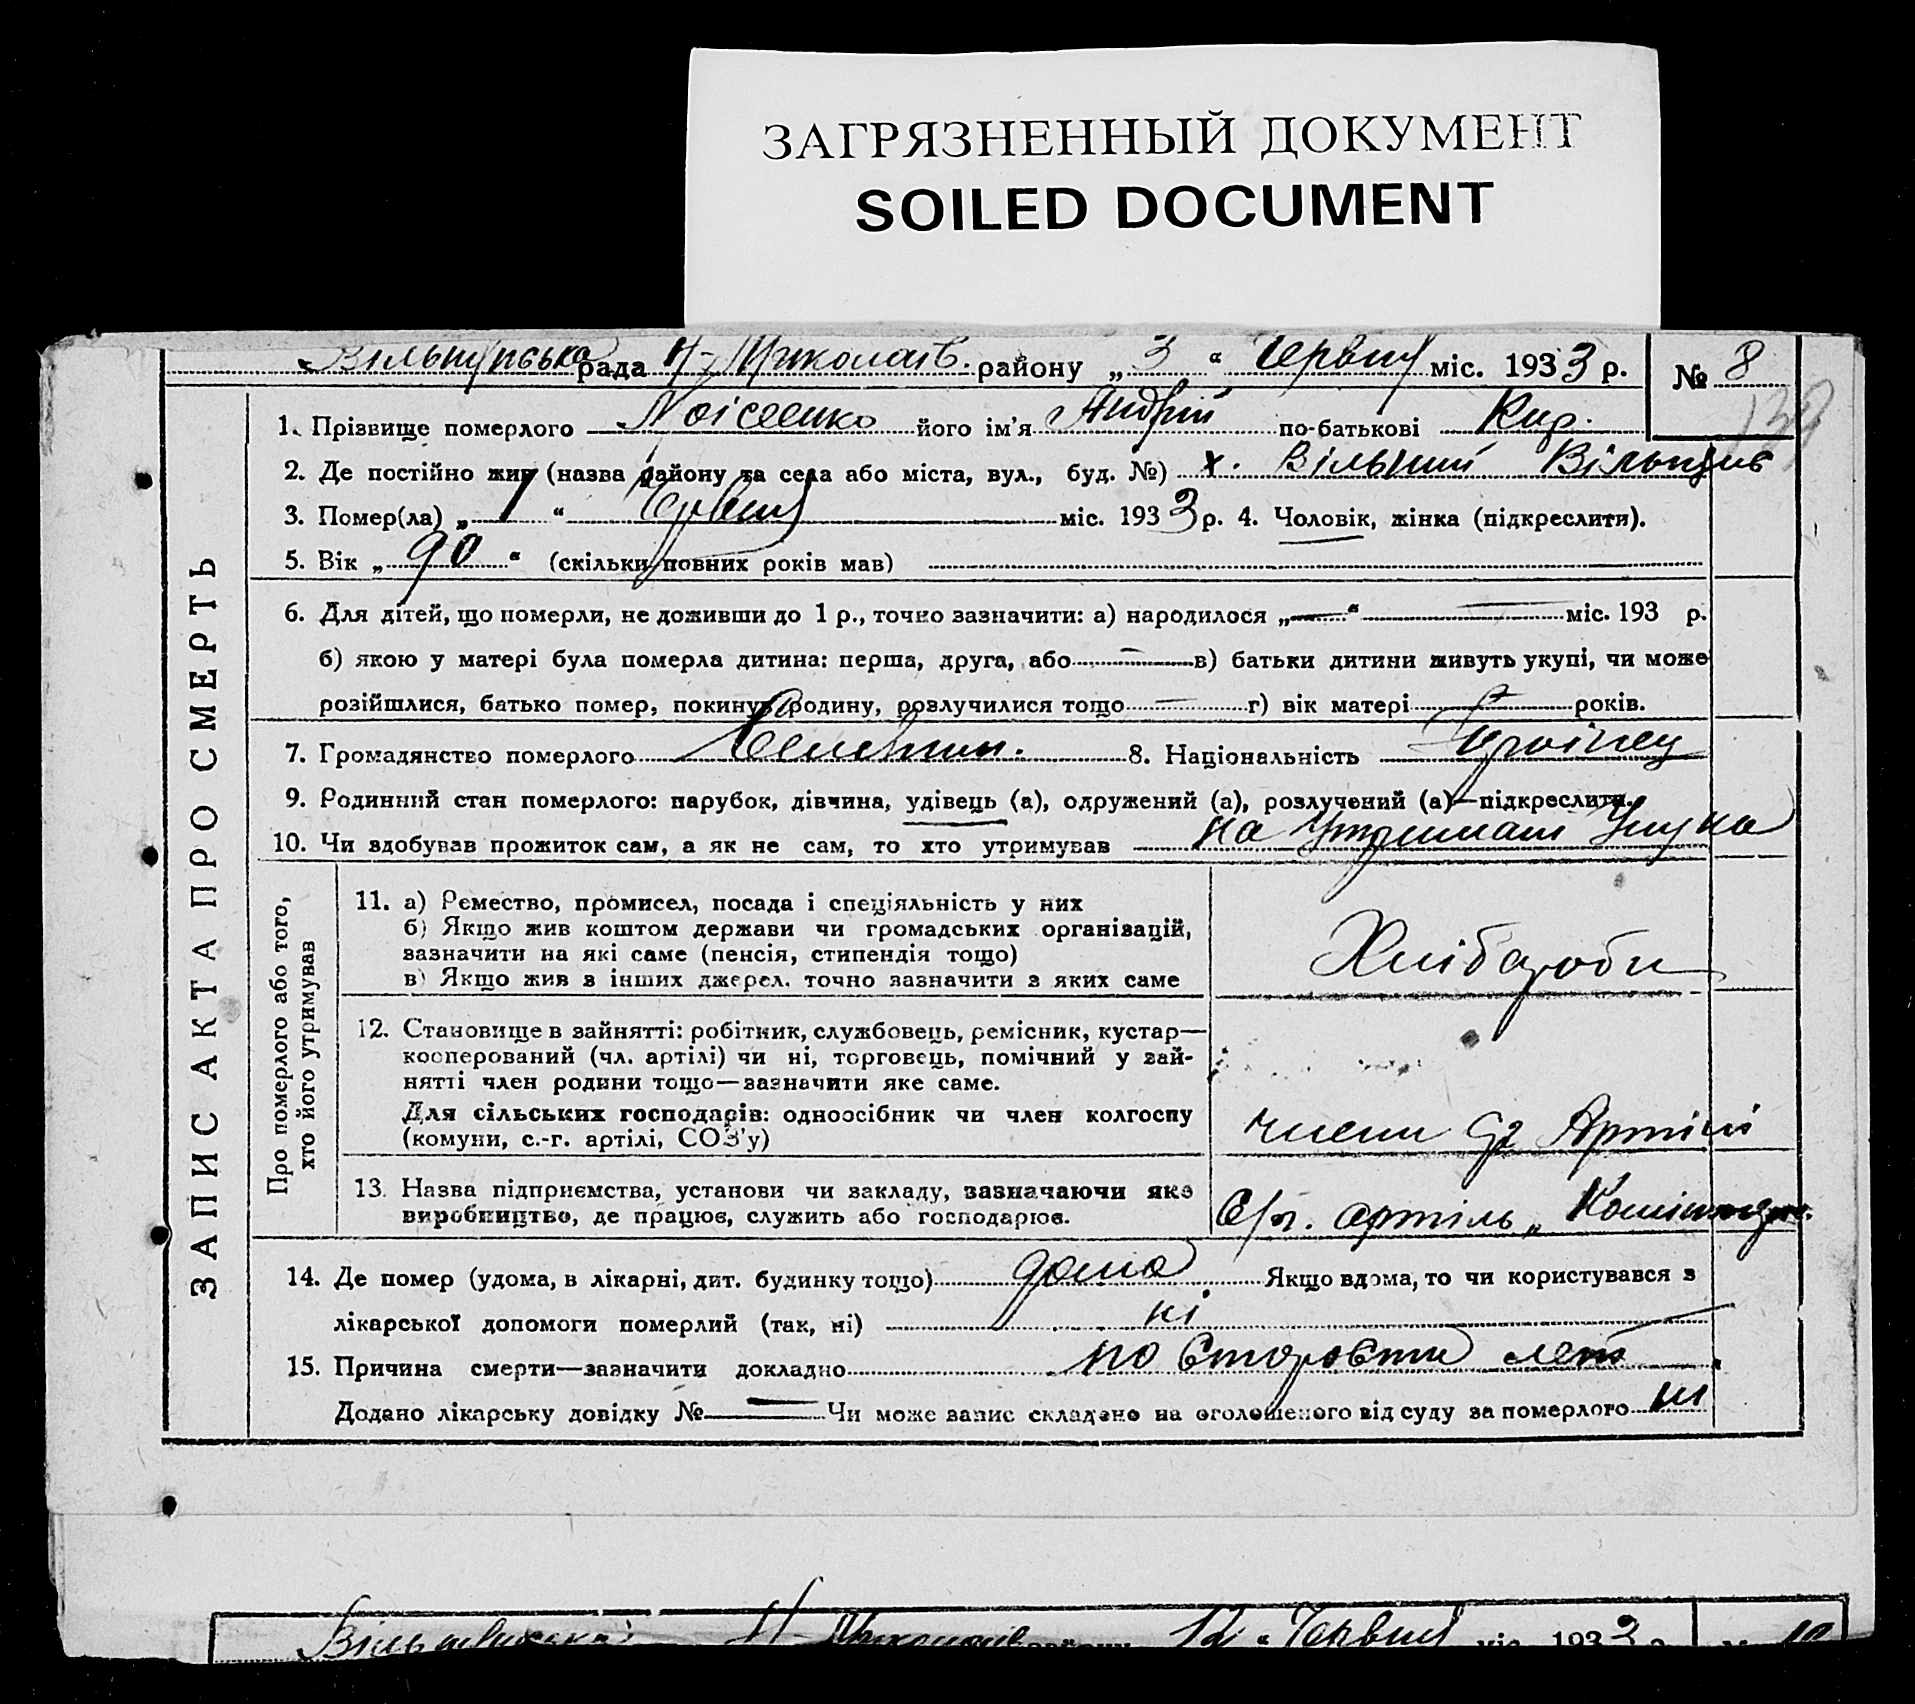 ЗАГРЯЗНЕННЫЙ ДОКУМЕНТ
SOILED DOCUMENT
рада Н-Миколаїв. району „3“ Червня міс. 1933 р. № 8
139
ЗАПИС АКТА ПРО СМЕРТЬ
1. Прізвище померлого Моісеенко його ім'я Андрій по-батькові Кир.
2. Де постійно жив (назва району та села або міста, вул., буд. №) х. Вільний
3. Помер(ла) „1“ Червня міс. 1933 р. 4. Чоловік, жінка (підкреслити).
5. Вік „90“ (скільки повних років мав)
6. Для дітей, що померли, не доживши до 1 р., точно зазначити: а) народилося „—“ — міс. 193 р.
б) якою у матері була померла дитина: перша, друга, або — в) батьки дитини живуть укупі, чи може
розійшлися, батько помер, покинув родину, розлучилися тощо — г) вік матері — років.
7. Громадянство померлого 8. Національність Украінец
9. Родинний стан померлого: парубок, дівчина, удівець (а), одружений (а), розлучений (а)—підкреслити.
10. Чи здобував прожиток сам, а як не сам, то хто утримував на Утриманні Унука
Про померлого або того,
хто його утримував
11. а) Ремество, промисел, посада і спеціяльність у них
б) Якщо жив коштом держави чи громадських організацій,
зазначити на які саме (пенсія, стипендія тощо)
в) Якщо жив з інших джерел. точно зазначити з яких саме
Хлібароби
12. Становище в зайнятті: робітник, службовець, ремісник, кустар—
кооперований (чл. артілі) чи ні, торговець, помічний у зай-
нятті член родини тощо—зазначити яке саме.
Для сільських господарів: одноосібник чи член колгоспу
(комуни, с.-г. артілі, СОЗ'у)
член Артілі
13. Назва підприємства, установи чи закладу, зазначаючи яке
виробництво, де працює, служить або господарює.
С/г. артіль
14. Де помер (удома, в лікарні, дит. будинку тощо) дома Якщо вдома, то чи користувався з
лікарської допомоги померлий (так, ні) ні
15. Причина смерти—зазначити докладно по Старости лет
Додано лікарську довідку № — Чи може запис складено на оголошеного від суду за померлого ні
Н-Миколаїв району 12 „ Червня міс. 1933 р.